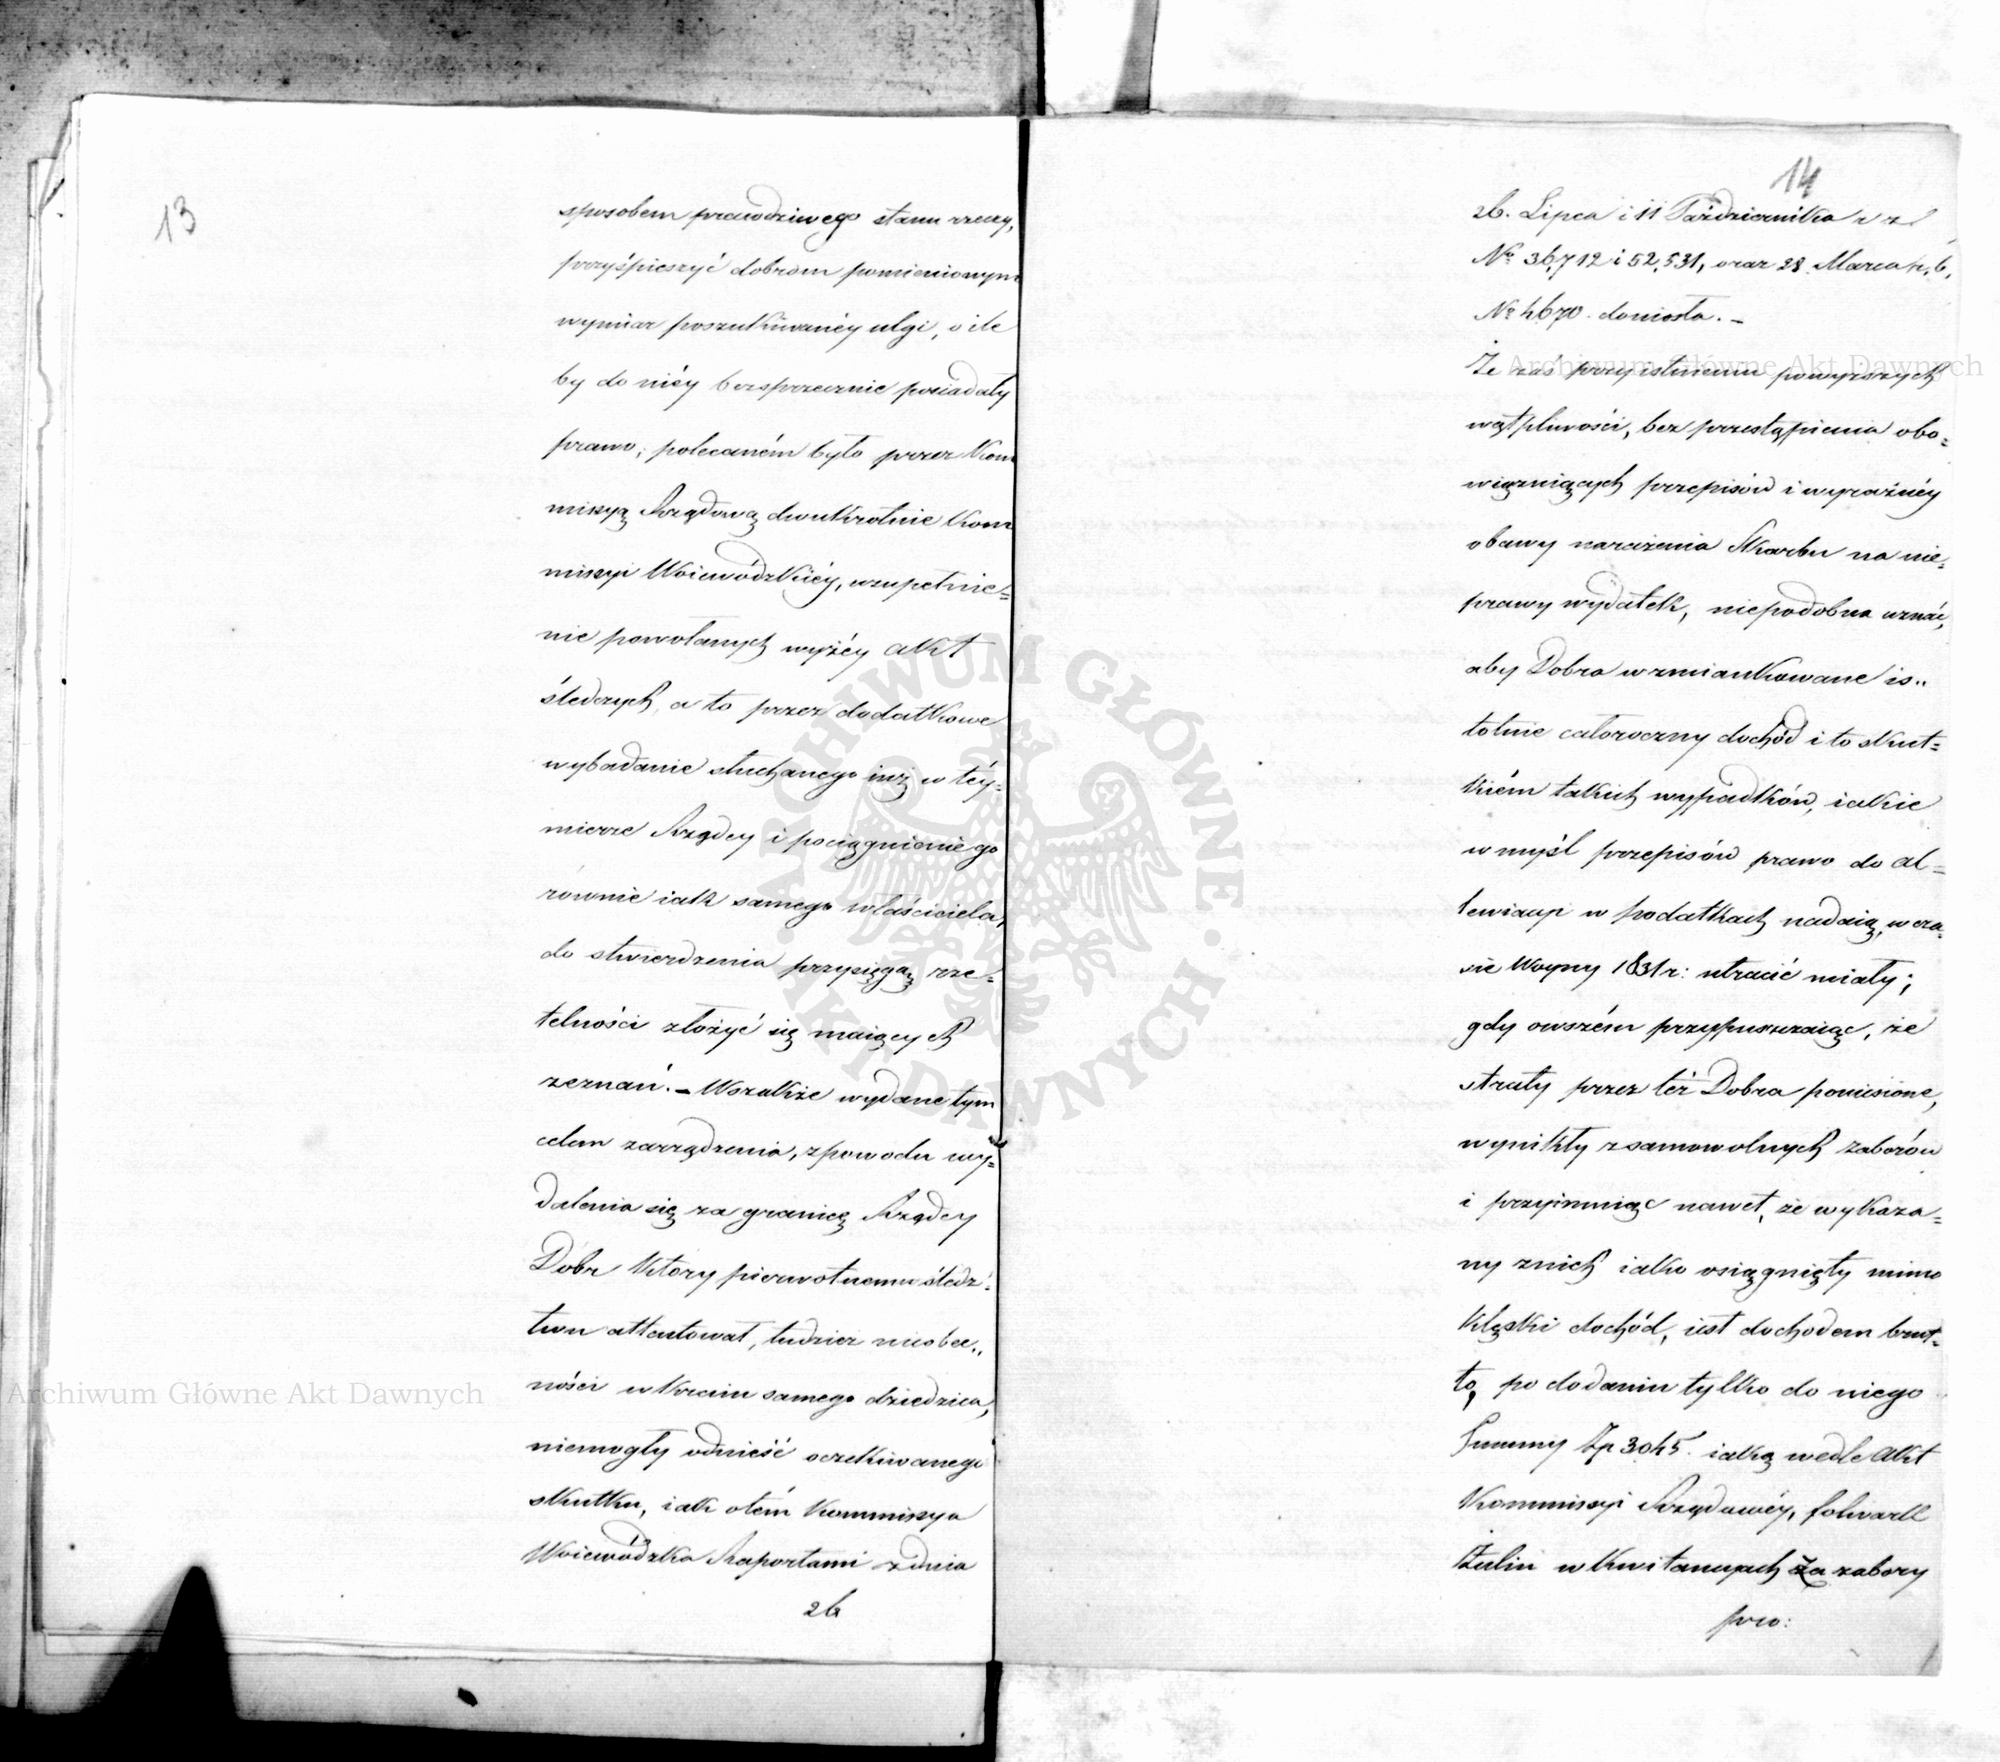 13
sposobem prawdziwego stanu rzeczy,
przyśpieszyć dobrom pomienionym
wymiar poszukiwanéy ulgi, o ile
by do niéy bezsprzecznie posiadały
prawo; polecaném było przez Kom
missyą Rządową dwukrotnie Kom
missyi Woiewódzkiéy, uzupełnie=
nie powołanych wyżéy Akt
śledczych, a to przez dodatkowe
wybadanie słuchanego iuż w téy=
mierze Rządcy i pociągnienie go
równie iak samego właściciela,
do stwierdzenia przysięgą rze=
telności złożyć się maiących
zeznań. – Wszakże wydane tym
celem zarządzenia, z powodu wy=
dalenia się za granicę Rządcy
Dóbr który pierwotnemu śledz=
twu attentował, tudzież nieobec„
ności w Kraiu samego dziedzica,
niemogły odnieść oczekiwanego
skutku, iak o tém Kommissya
Woiewódzka Raportami z dnia
26
14
26. Lipca i 11 Października r z.
No 36,712 i 52,531, oraz 28. Marca r. b,
No 4670. doniosła. –
Że zaś przy istnieniu powyższych
wątpliwości, bez przestąpienia obo=
wiązuiących przepisów i wyraźnéy
obawy narażenia Skarbu na nie=
prawy wydatek, niepodobna uznać,
aby Dobra wzmiankowane is„
totnie całoroczny dochód i to skut=
kiém takich wypadków, iakie
w myśl przepisów prawo do al=
lewiacyi w podatkach nadaią, w cza=
sie Woyny 1831 r: utracić miały;
gdy owszém przypuszczaiąc, że
straty przez też Dobra poniesione,
wynikły z samowolnych zaborów
i przyimuiąc nawet, że wykaza=
ny z nich iako osiągnięty mimo
klęski dochód, iest dochodem brut=
to, po dodaniu tylko do niego
Summy Zp 3045. iaką wedle Akt
Kommissyi Rządowéy, folwark
Żulin w Kwitancyach za zabory
pro:
Archiwum Główne Akt Dawnych
Archiwum Główne Akt Dawnych
ARCHIWUM GŁÓWNE · AKT DAWNYCH ·